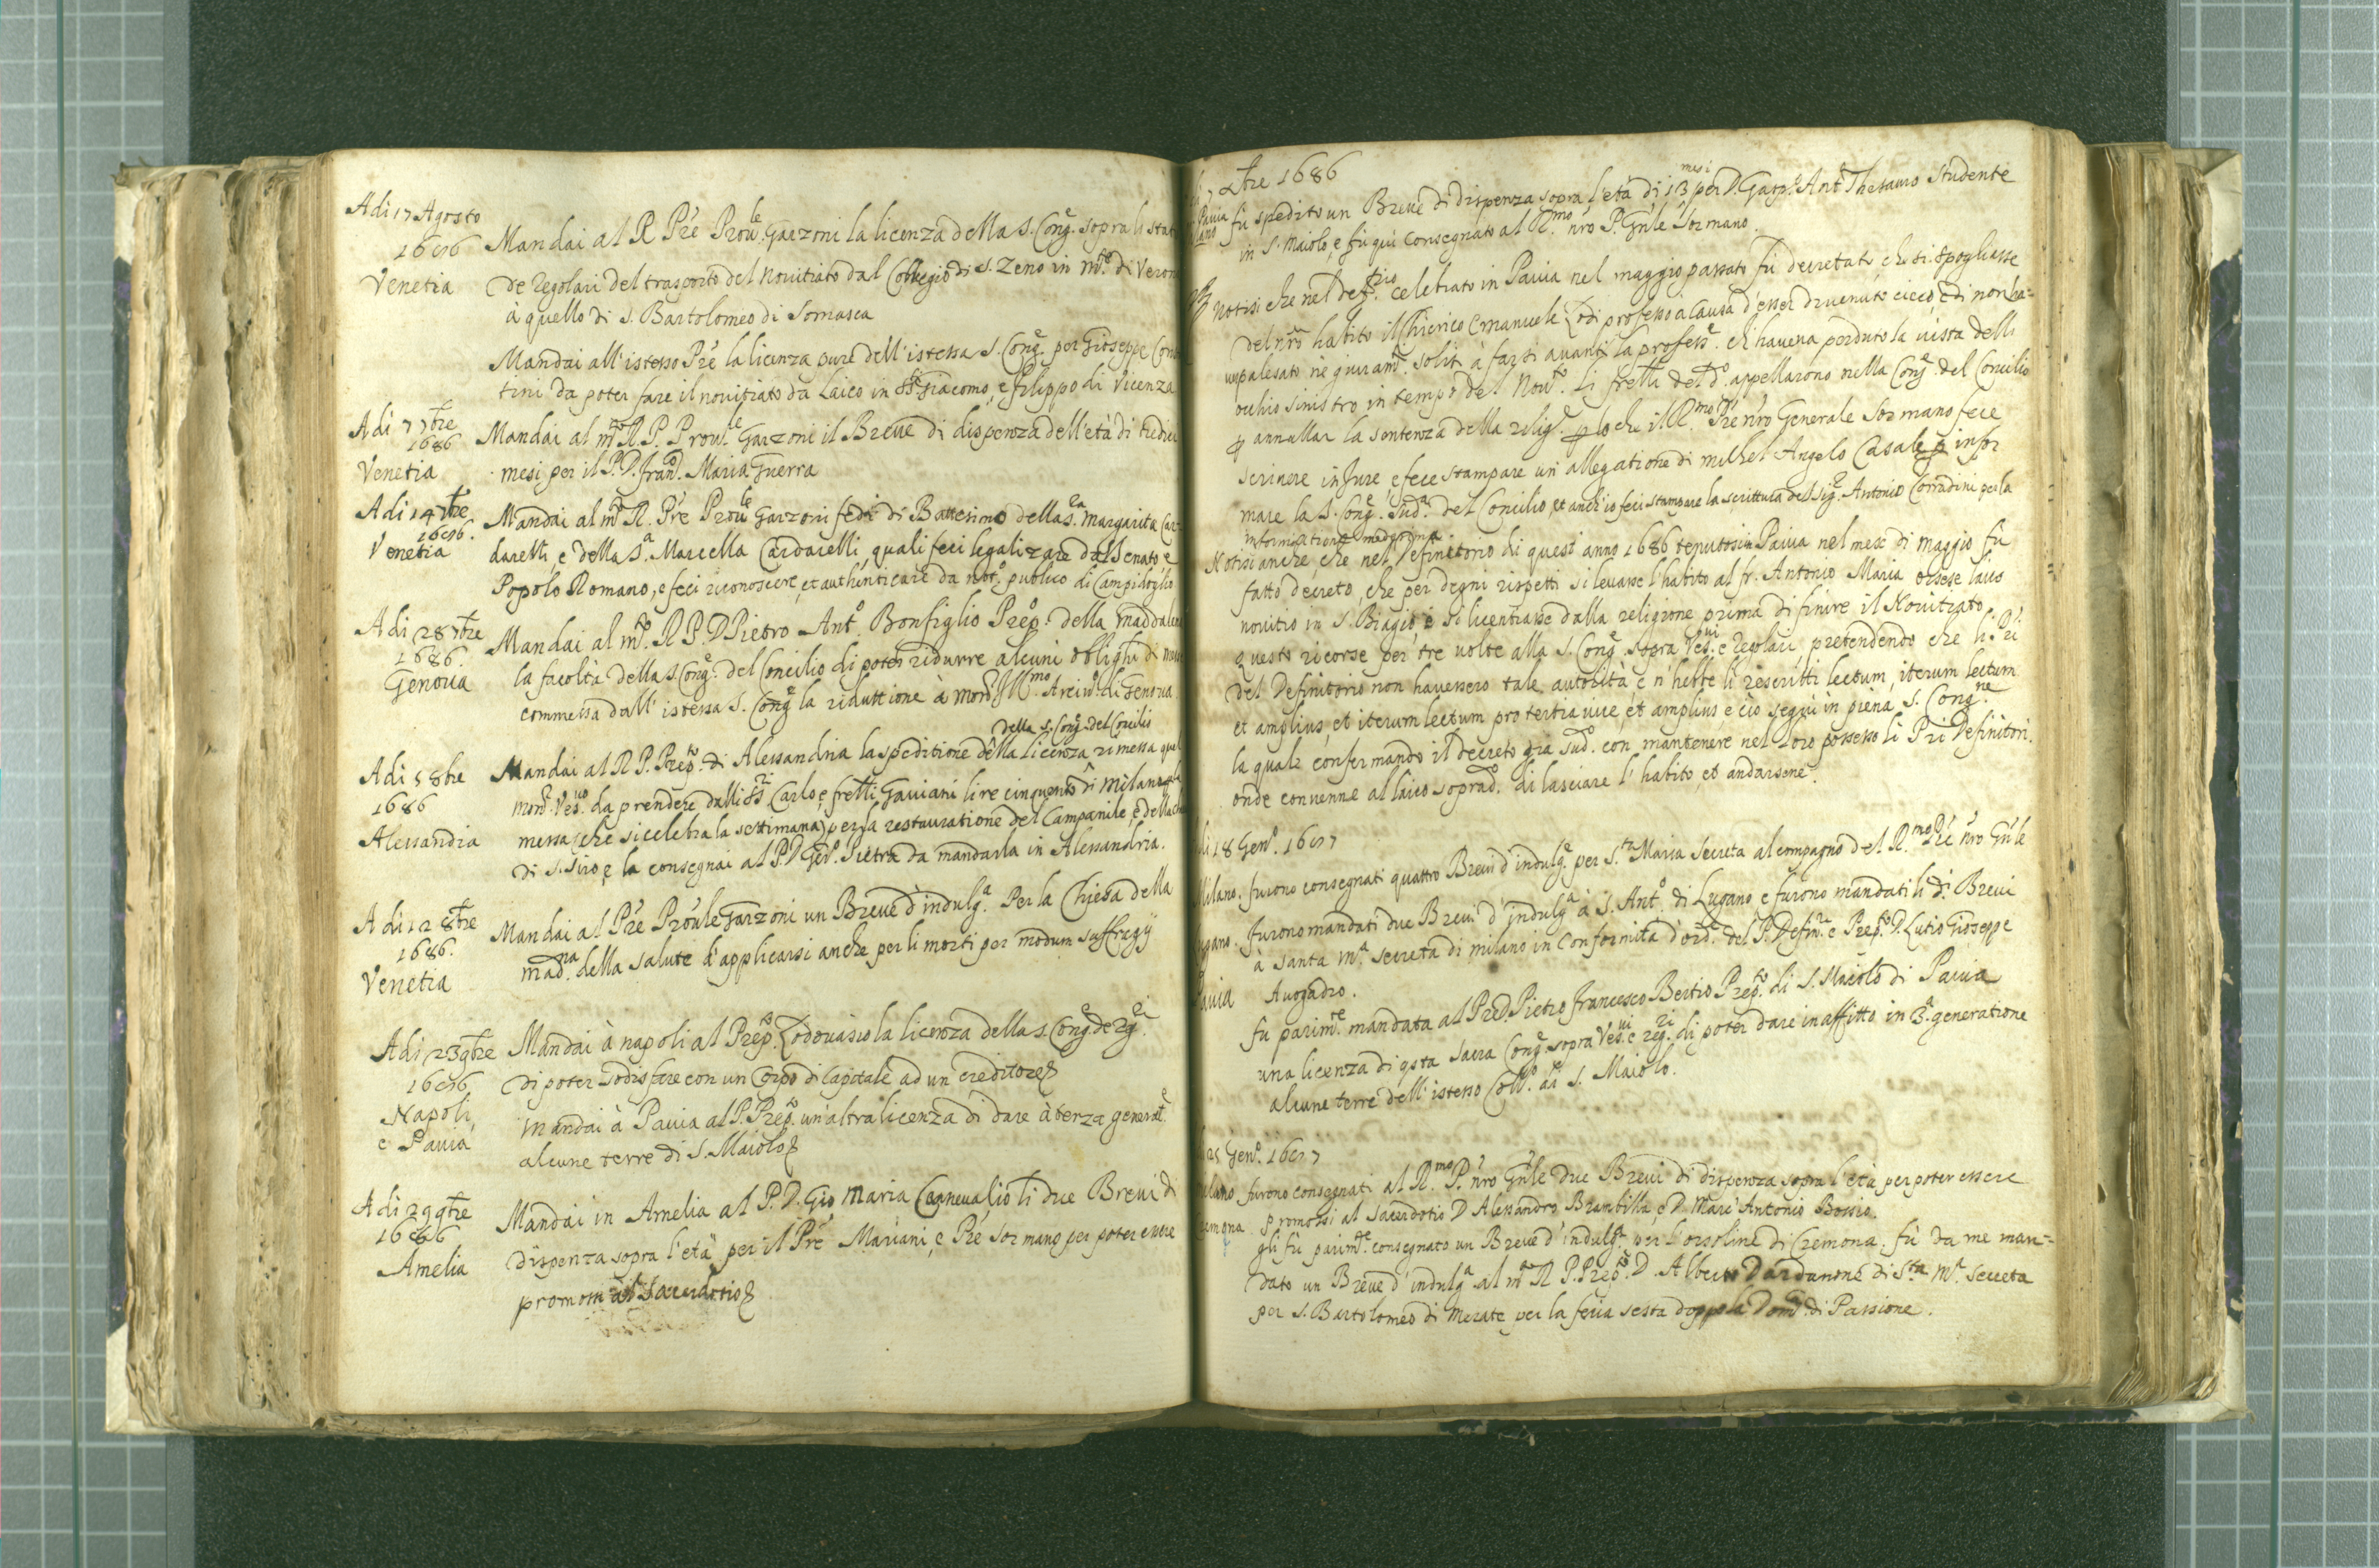 Adi 17 Agosto
1686
Venetia
Mandai al R. Pre Prou.le Garzoni la licenza della S. Cong.e sopra li stat
de Regolari del trasporto del Novitiato dal Collegio di S. Zeno in M.te di Veron
à quello di S. Bartolomeo di Somasca
Mandai all'istesso Pre la licenza pure dell'istessa S. Cong.e per Gioseppe
tini da poter fare il novitiato da Laico in SS. Giacomo, e Filippo di Vicenza
Adi 7 7bre
1686
Venetia
Mandai al m.to R. P. Prou.le Garzoni il Breve di dispenza dell'età di
mesi per il P. D. Fran.o Maria Guerra
Adi 14 7bre
1686.
Venetia
Mandai al m.to R. Pre Prou.le Garzoni fedi di Battesimo della S.ra Margarita Car-
darelli, e della S.a Marcella Cardarelli, quali feci legalizare dal Senato e
Popolo Romano, e feci riconoscere, et authenticare da not.o publico di Campidoglio
Adi 28 7bre
1686.
Genova
Mandai al m.to R. P. D. Pietro Ant.o Bonfiglio Prep.o della Maddalena
la facoltà della S. Cong.e del Concilio di poter ridurre alcuni oblighi di
commessa dall'istessa S. Cong.e la riduttione à Mons.r Ill.mo Arciv.o di Genova
Adi 5 8bre
1686
Alessandria
della S. Cong.e del Concilio
Mandai al R. P. Prep.to di Alessandria la speditione della licenza rimessa
Mons.r Ves.vo da prendere dalli SS.ri Carlo, e fretli Gaviani lire cinquento di Milano
messa (che si celebra la settimana) per la restauratione del Campanile, e della
di S. Siro, e la consegnai al P. D. Pietra da mandarla in Alessandria.
Adi 12 8bre
1686.
Venetia
Mandai al Pre Proule Garzoni un Breve d'indulg.a Per la Chiesa della
Mad.na della Salute d'applicarsi anche per li morti per modum suffragij
Adi 23 9bre
1686
Napoli,
e Pavia
Mandai à napoli al Prep.to Lodovasio la licenza della S. Cong.e de Reg.ri
di poter sodisfare con un Corpo di Capitale ad un creditore
Mandai à Pavia al P. Prep.to un'altra licenza di dare à terza generat.e
alcune terre di S. Maiolo
Adi 29 9bre
1686
Amelia
Mandai in Amelia al P. D. Gio Maria Carnevalio li due Brevi di
dispenza sopra l'età per il Pre Mariani, e Pre Sormano per poter essere
promossi al Sacerdotio
7 Xbre 1686
Pavia fù spedito un Breve di dispenza sopra l'età di 13 mesi per D. Gasp.e Ant.o Thesauro Studente
in S. Maiolo, e fù qui consegnato al R.mo nro P. Gnle Sormano.
Notisi che nel def.rio celebrato in Pavia nel maggio passato fù decretato, che si spogliasse
del nro habito il Chierico Emanuele Lodi professo à causa d'esser divenuto cieco, e di non ha-
ver palesato ne giuram.ti soliti à farsi avanti la profess.e ch'haveva perduto la vista dell'
occhio sinistro in tempo del Nov.to. Li fretli del d.o appellarono nella Cong.e del Concilio
p annullar la sentenza della relig.e p lo che il R.mo Pre nro Generale Sormano fece
scrivere in Jure, e fece stampare un'allegatione di Michel Angelo Casale p infor
mare la S. Cong.e sud.a del Concilio, et anch'io feci stampare la scrittura del Sig.r Antonio Corradini per la
informatione medesima
Notisi anche, che nel Definitorio di quest'anno 1686 tenutosi in Pavia nel mese di Maggio fu
fatto decreto, che per degni rispetti si levasse l'habito al fr. Antonio Maria Orsese laico
novitio in S. Biagio, e si licentiasse dalla religione prima di finire il Novitiato,
questo ricorse per tre volte alla S. Cong.e sopra Ves.vi e Regolari pretendendo che li PP.
del Definitorio non havessero tale autorità, e n'hebbe li rescritti lectum, iterum lectum
et amplius, et iterum lectum pro tertia vice, et amplius e ciò seguì in piena S. Cong.ne
la quale confermando il decreto già sud.o con mantenere nel loro possesso li Pri Definitori.
onde convenne al laico soprad.o di lasciare l'habito, et andarsene.
di 18 Gen.o 1687
Milano. furono consegnati quattro Brevi d'indulg.e per S.ta Maria Secreta al compagno del R.mo Pre nro Gnle
Lugano. furono mandati due Brevi d'indulg.a à S. Ant.o di Lugano e furono mandati li d.i Brevi
à Santa M.a Secreta di Milano in conformità d'ord.e del P. Defin.re e Prep.to D. Lutio Gioseppe
Avogadro.
Pavia
fu parim.te mandata al Pre D. Pietro Francesco Bertio Prep.to di S. Maiolo di Pavia
una licenza di qsta Sacra Cong.e sopra Ves.vi e Reg.ri di poter dare in affitto in 3.a generatione
alcune terre dell'istesso Coll.o di S. Maiolo.
25 Gen.o 1687
Milano furono consegnati al R.mo P. nro Gnle due Brevi di dispenza sopra l'età per poter essere
Cremona promossi al Sacerdotio D. Alessandro Brambilla, e D. Marc'Antonio Bossio.
gli fù parim.te consegnato un Breve d'indulg.a per l'orsoline di Cremona. fù da me man-
dato un Breve d'indulg.a al m.to R. P. Prep.to D. Alberto Dardanone di S.ta M.a Secreta
per S. Bartolomeo di Merate per la feria sesta doppo la Dom.ca di Passione.